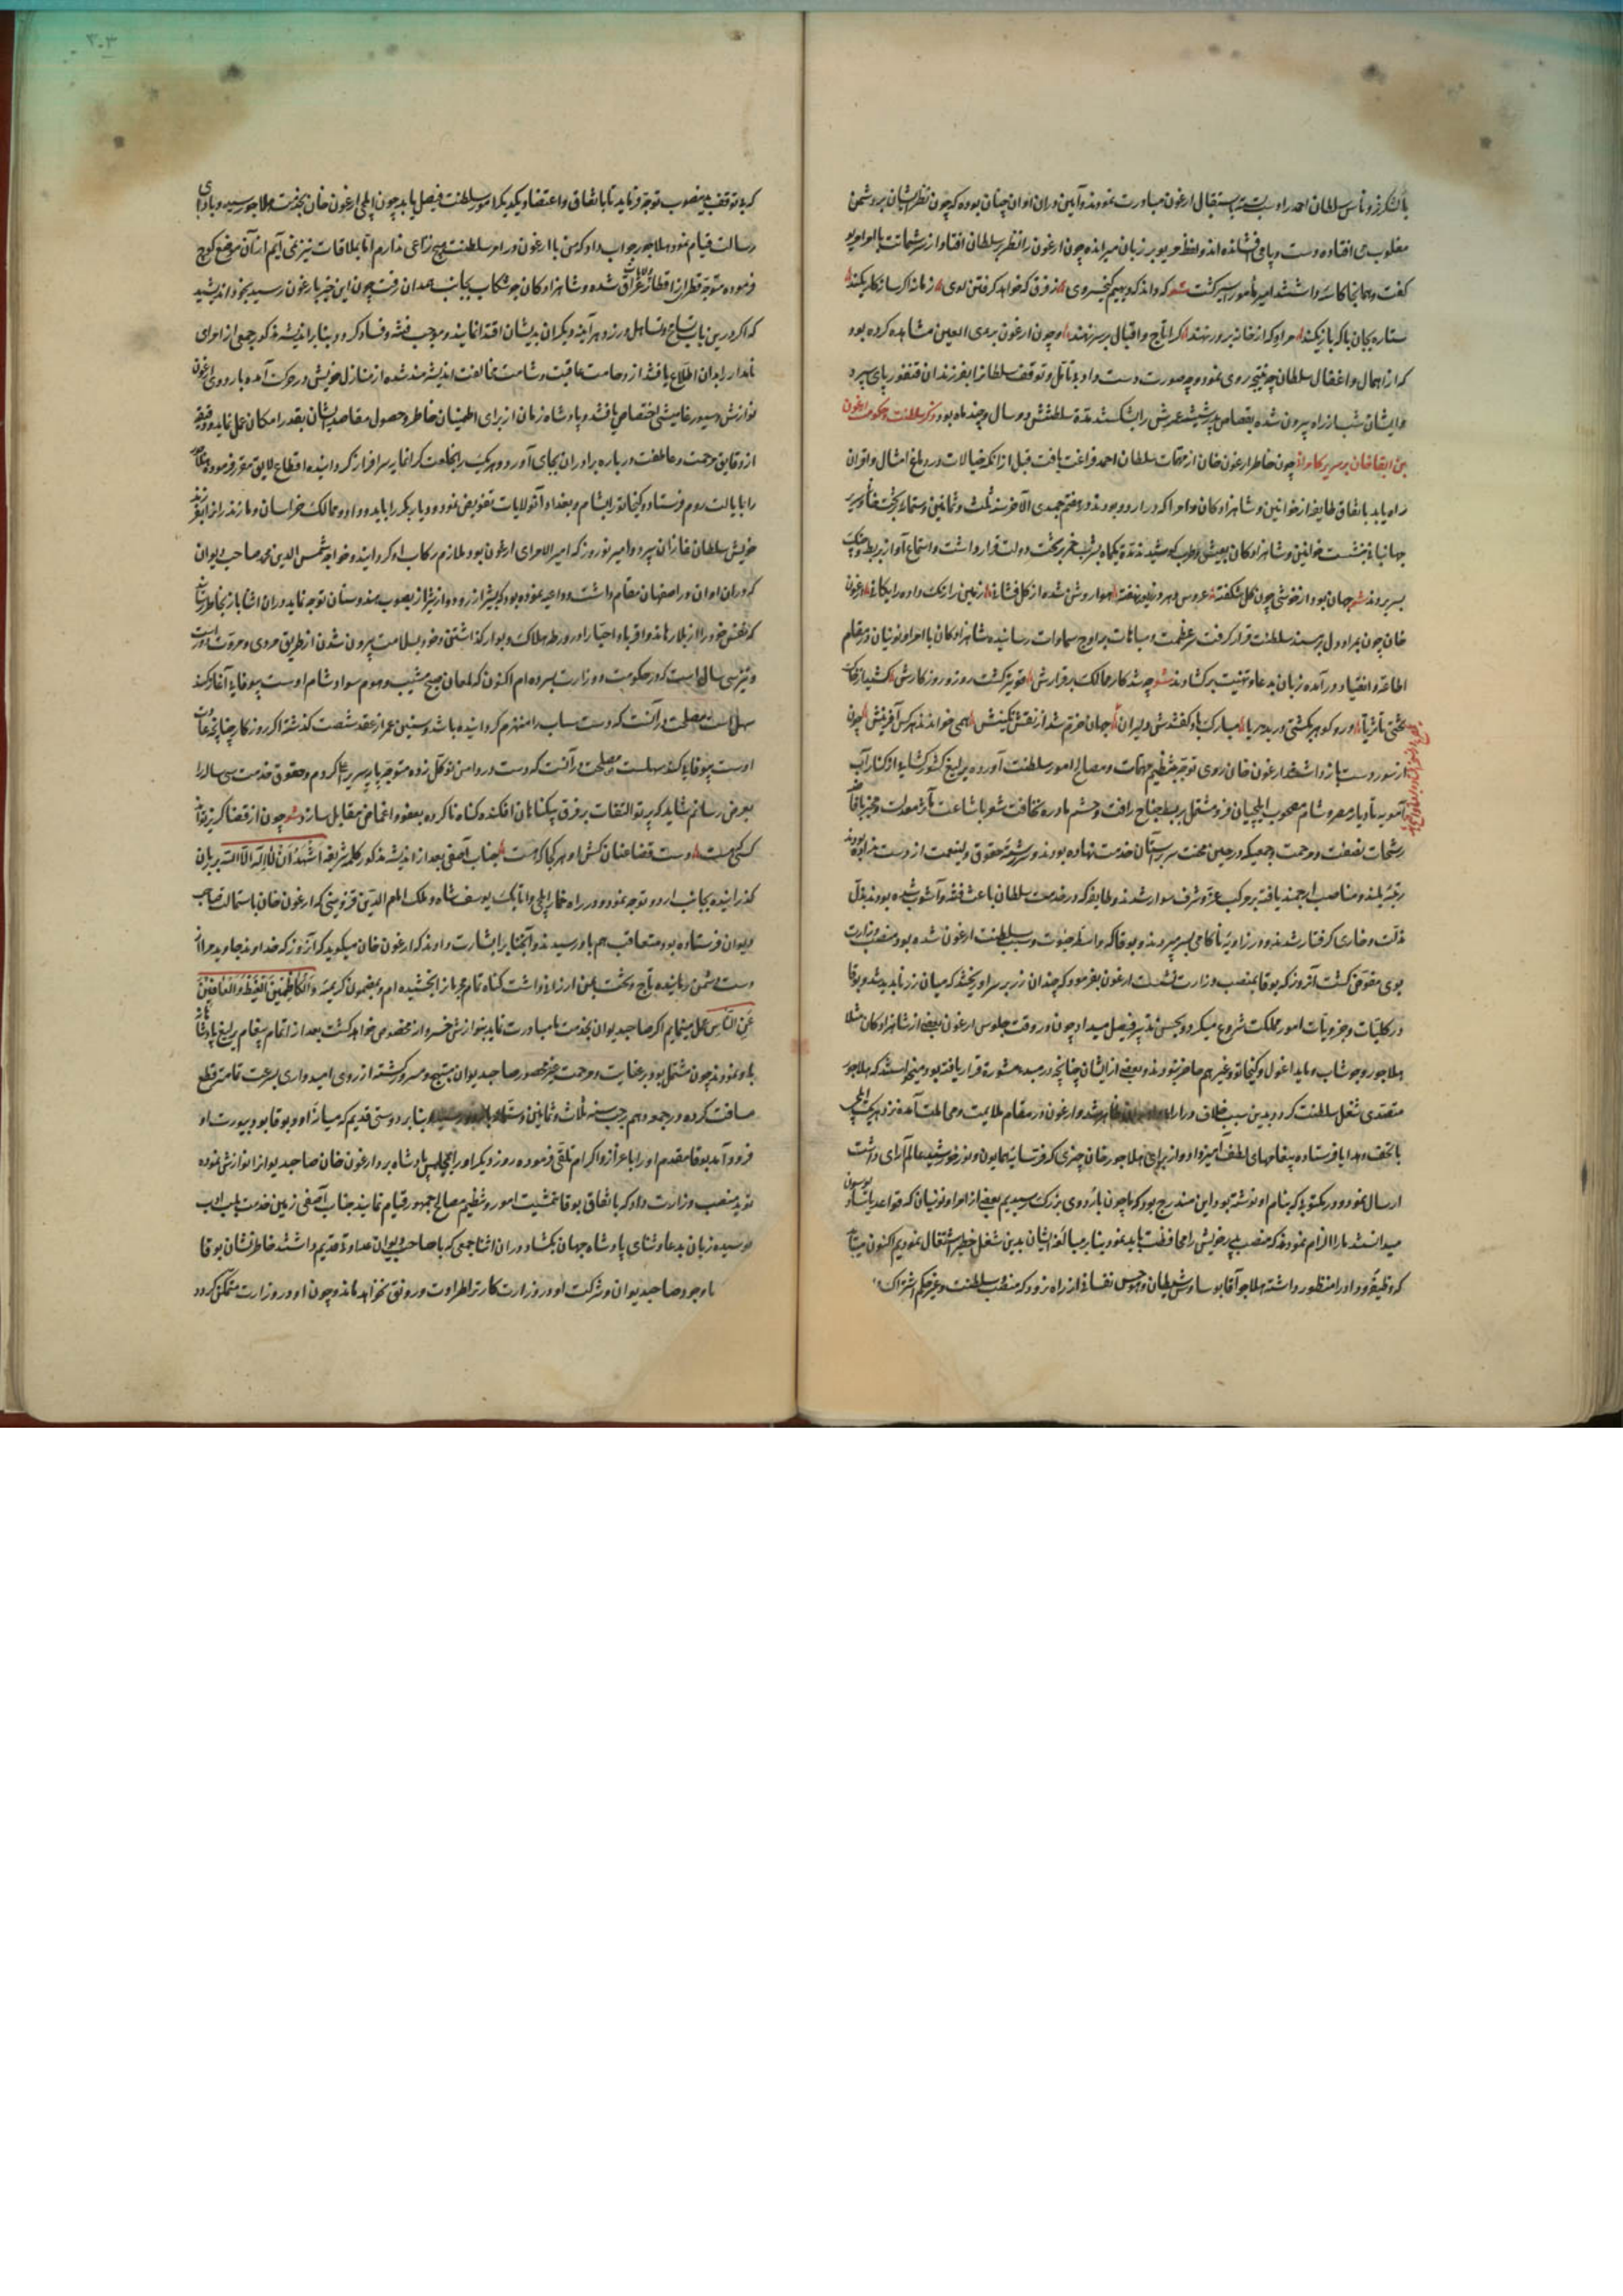 با لشکر قروناس سلطان احمد را و بسته استقبال ارغون مبادرت نمودند و آیین در آن اوان چنان بوده که چون نظر ایشان بر دشمن
مغلوب می افتاده دست و پای می افشانده اند و لفظ مریو بر زبان میرانده چون ارغون را نظر بر سلطان افتاد از سر شماتت با امرا مریو
گفت و همانجا کاسه داشتند امیر مأمور اسیر گشت شعر که داند که دیهیم کیخسروی ز فرق که خواهد گرفتن نوی زمانه کرا سازگاری کند
ستاره بجان با که بازی کند مراو که از خانه بر در نهند کرا تاج و اقبال بر سر نهند و چون ارغون برای العین مشاهده کرده بود
که از اهمال و اغفال سلطان چه نتیجه روی نمود و چه صورت دست داد بی تأمل و توقف سلطان را بفرزندان قنقورتای سپرد
و ایشان شب از راه بیرون شده بقصاص پدر شیشه عمرش را بشکستند مدة سلطنتش دو سال و چند ماه بود ذکر سلطنت و حکومت ارغون
بن ابقا خان بر سریر کامرانی چون خاطر ارغون خان از مهمات سلطان احمد فراغت یافت قبل از انکه خیالات در دماغ امثال و اقران
راه یابد باتفاق طایفه از خوانین و شاهزادکان و امرا که در اردو بودند در هفتم جمیدی الآخر سنه ثلث و ثمانین و ستمائه بر تخت خانی و سریر
جهانبانی نشست خواتین و شاهزادکان بعیش و طرب کوشیدند مدة یکماه بشرب خمر بر تخت دولت قرار داشت و استماع آواز بربط و چنک
بسر بردند شعر جهان بود از خوشی چون گل شکفته عروس مهر در نیلو نهفته هوا روشن شده از گل فشانی زمین را رنک داده رایکانی ارغون
خان چون بمراد دل بر مسند سلطنت قرار گرفت سر عظمت و مباهات بر اوج سماوات رسانیده شاهزادکان با امرا و نوئینان در مقام
اطاعة و انقیاد در آمده زبان بدعا و تهنیت بر کشادند شعر چو شد کار ممالک بر قرارش قوی تر گشت روز و روزکارش
مبارک باد گفتندش دلیران جهان خرم شد از نقش نگینش همی خواندند هرکس آفرینش چون
از سور دست باز داشتند ارغون خان روی توجه بتنظیم مهمات و مصالح امور سلطنت آورده یرلیغ کشور گشای از کنار آب
آمویه تا دیار مصر و شام مصحوب ایلچیان مشتمل بر بسط جناح رافت
رشحات نصفت و مرحمت و جمعیکه در حین محنت سر بر آستان خدمت نهاده بودند و سررشته حقوق ولینعمت از دست نداده بودند
رتبه بلند و مناصب ارجمند یافته بر مرکب عز و شرف سوار شدند و طایفه که در خدمت سلطان باعث فتنه و آشوب شده بودند بذل
مذلت و خواری گرفتار شدند و در زاویه ناکامی بسر میبردند و بوقا که واسطه حیوت و سبب سلطنت ارغون شده بود منصب وزارت
بوی مفوض گشت آنروز که بوقا بمنصب وزارت نشست ارغون بفرمود که چندان زر بر سر او ریختند که میان زر ناپدید شد و بوقا
در کلیات و جزویات امور مملکت شروع میکرد و بحسن تدبیر فیصل میداد چون در وقت جلوس ارغون بعضی از شاهزادکان مثلا
هلاجور و جوشاب و بایدو اغول و کیخاتو و غیرهم حاضر نبودند و بعضی از ایشان چنانچه در مبدء مشورة قرار یافته بود میخواستند که هلاجو
متصدی شغل سلطنت گردد بدین سبب خلاف در ارا شد و ارغون در مقام ملایمت و ممالت آمده نزد هریک ایلچی
با تحف و هدایا فرستاده پیغامهای لطف آمیز داد و از برای هلاجور خان چتری که فر سایه همایون و نور خورشید عالم آرای داشت
ارسال نمود و در مکتوبی که بنام او نوشته بود این مندرج بود که ما چون باردوی بزرک رسیدیم بعضی از امرا و نوئینان که قواعد یاسا و یوسون
میدانستند ما را الزام نمودند که منصب پدر خویش را محافظت باید نمود بنابر مبالغه ایشان بدین شغل خطیر اشتغال نمودیم اکنون میباید
که وظیفه و داد را منظور داشته هلاجو آقا بوساوس شیطان و هوس نفسانی از راه نرود که منصب سلطنت و غیر حکم اشتراک
که بی توقف بدین صوب توجه فرماید تا باتفاق و اعتضاد یکدیکر امور سلطنت فیصل یابد چون ایلچی ارغون خان بخدمت هلاجو رسید و بادای
رسالت قیام نمود هلاجو جواب داد که من با ارغون در امر سلطنت هیچ نزاعی ندارم اما بملاقات نیز نمی آیم از آن موضع کوچ
فرموده متوجه قطری از اقطار عراق شده و شاهزادکان جوشکاب بجانب همدان رفت چون این خبر بارغون رسید بخود اندیشید
که اگر درین باب تسامح و تساهل ورزد هر آینه دیگران بدیشان اقتدا نمایند و موجب فتنه و فساد کردد بنابر اندیشه مذکور جمعی از امرای
نامدار را بدان اطلاع یافتند از وخامت عاقبت و شامت مخالفت اندیشه مند شده از منازل خویش در حرکت آمده باردوی ارغون
نوازش و سیورغامیشی اختصاص یافتند و پادشاه زمان از برای اطمینان خاطر و حصول مقاصد ایشان بقدر امکان عمل نماید و دقیقه
از دقایق مرحمت و عاطفت درباره برادران بجای آورد و هریک را بخلعت گرانمایه سرافراز گردانیده اقطاع لایق مقرر فرمود
را بایالت روم فرستاد و کیخاتو را بشام و بغداد آنولایات تفویض نمود و دیار بکر را ببایدو داد و ممالک خراسان و مازندران را بفرزند
خویش سلطان غازان سپرد و امیر نوروز که امیر الامرای ارغون بود ملازم رکاب او گردانید و خواجه شمس الدین محمد صاحب دیوان
که در آن اوان در اصفهان مقام داشت و داعیه نموده بود که بشیراز رود و از شیراز بصوب هندوستان توجه نماید در آن اثنا باز بخاطر رسانید
که نفس خود را از بلا رهاندن و اقربا و احبا را در ورطه هلاک و بوار گذاشتن و خود بسلامت بیرون شدن از طریق مردی و مروت دور است
و نیز سی سال است که در حکومت و وزارت بسر برده ام اکنون که لمعان صبح مشیب و هجوم سواد شام اوست بیوفایی آغاز کند
سهل است مصلحت در آنست که دست سیاب را منهزم گردانیده باشد و سنین عمر از عقد شصت گذشته اگر روزکار چنانچه عادت
اوست بیوفایی کند سهلست و مصلحت در آنست که دست در دامن توکل زده متوجه پایه سریر اعلا گردم و حقوق خدمت سی ساله را
بعرض رسانم شاید که پرتو التفات بر فرق بیکناهان افکنده گناه ناکرده بعفو و اغماض مقابل سازد شعر چون از قضا گریز ندارد
کسی که هست دست قضا عنان کش او هر کجا که هست جناب آصفی بعد از اندیشه مذکور کلمه شریفه اَشْهَدُ اَن لا اِلٰهَ اِلَّا الله بر زبان
گذرانیده بجانب اردو توجه نمود و در راه خمار ایلچی و اتابک یوسف شاه و ملک امام الدین قزوینی که ارغون خان باستمالت صاحب
دیوان فرستاده بود متعاقب هم باو رسیدند و آنجنابرا بشارت دادند که ارغون خان میگوید که آنروز که خداوند جاوید مرا از
دست دشمن رهانیده بتاج و تخت بمن ارزانی داشت گناه تمام مجرمانرا بخشیده ام و بمضمون کریمه وَالْكَاظِمِينَ الْغَيْظَ وَالْعَافِينَ
عَنِ النَّاسِ عمل مینمایم اگر صاحبدیوان بخدمت ما مبادرت نماید بنوازش خسروانه مخصوص خواهد گشت بعد از اتمام پیغام یرلیغ پادشاه
باو نمودند چون مشتمل بود بر عنایت و مرحمت ضمیر صاحبدیوان مبتهج و مسرور گشته از روی امیدواری بسرعت تمامتر قطع
مسافت کرده در جمعه دهم رجب سنه ثلاث و ثمانین و ستمائه باردو رسید و بنابر دوستی قدیم که میان او و بوقا بود بیورت او
فرود آمد بوقا مقدم او را باعزاز و اکرام تلقی فرموده روز دیگر او را بمجلس پادشاه برد ارغون خان صاحبدیوانرا نوازش نموده
نوید منصب وزارت داد که باتفاق بوقا تمشیت امور و تنظیم مصالح جمهور قیام نمایند جناب آصفی زمین خدمت بلب ادب
بوسیده زبان بدعا و ثنای پادشاه جهان بکشاد در آن اثنا جمعی که با صاحب دیوان عداوة قدیم داشتند خاطر نشان بوقا
با وجود صاحبدیوان و شرکت او در وزارت کار ترا طراوت و رونق نخواهد ماند و چون او در وزارت متمکن گردد
۲۰۳